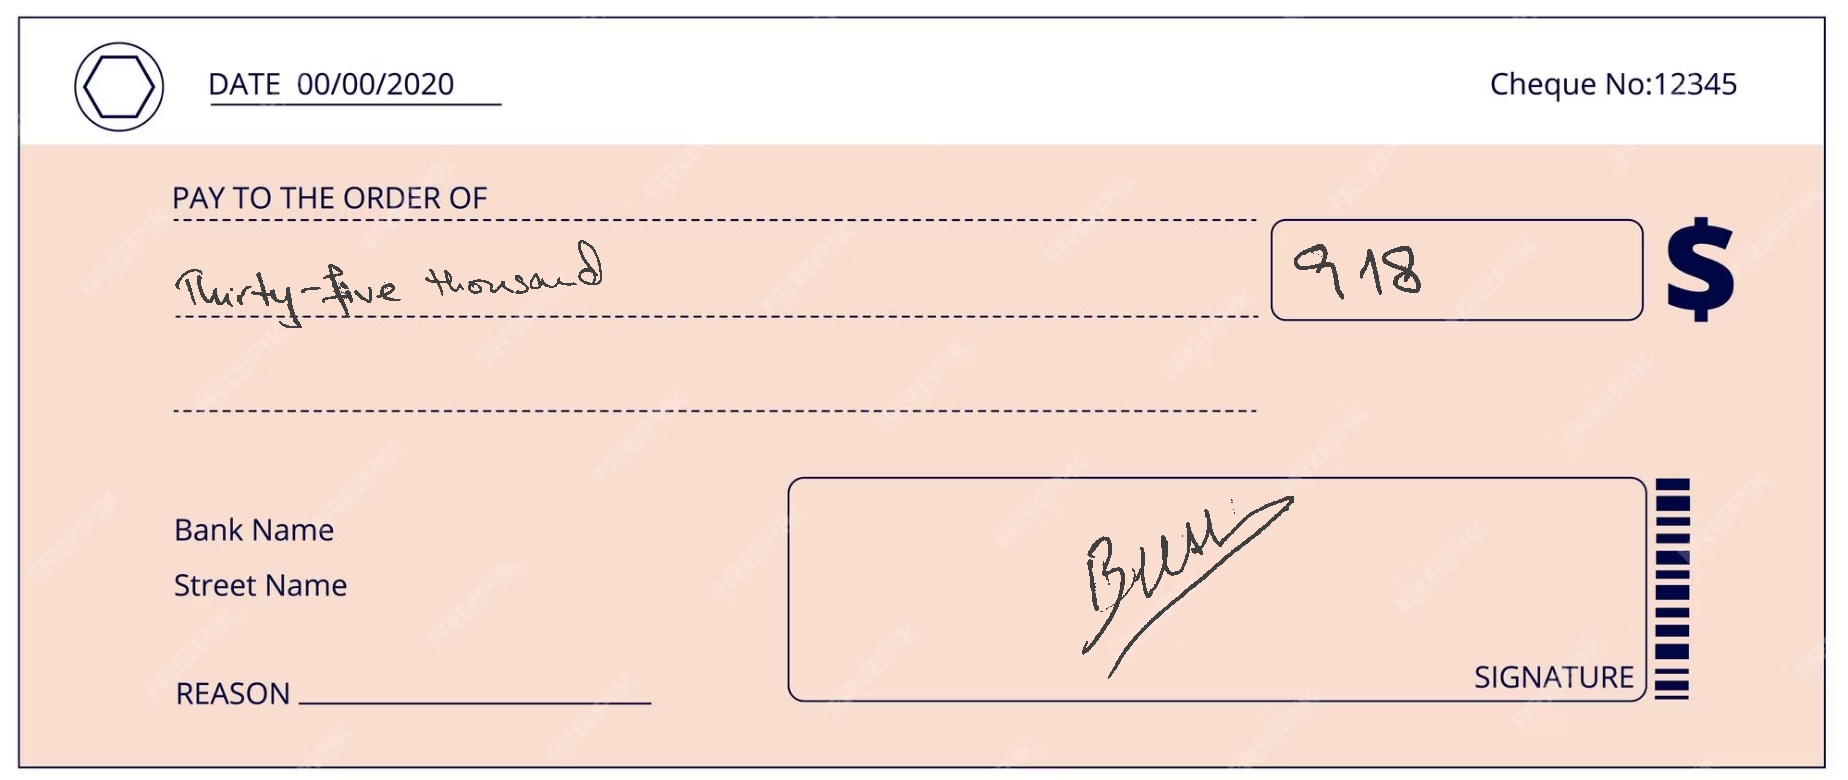 DATE 00/00/2020
Cheque No:12345
PAY TO THE ORDER OF
Thirty-five thousand
918
$
Bank Name
Street Name
SIGNATURE
REASON